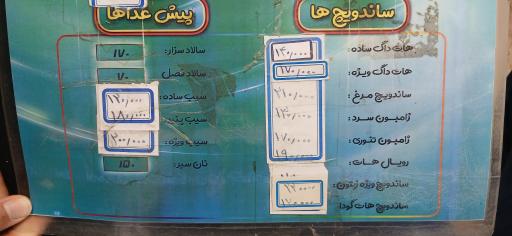 ساندویچ ها
هات داگ ساده: ۱۴۰/۰۰۰
هات داگ ویژه: ۱۷۰/۰۰۰
ساندویچ مرغ: ۲۱۰/۰۰۰
ژامبون سرد: ۱۳۰/۰۰۰
ژامبون تنوری: ۱۷۰/۰۰۰
رویال هات:
ساندویچ ویژه زیتون:
ساندویچ هات گودا:
پیش غذاها
سالاد سزار: ۱۷۰
سالاد فصل: ۷۰
سیب ساده: ۱۲۰/۰۰۰
سیب ۱۸۰/۰۰۰
سیب ویژه: ۲۰۰/۰۰۰
نان سیر: ۱۵۰